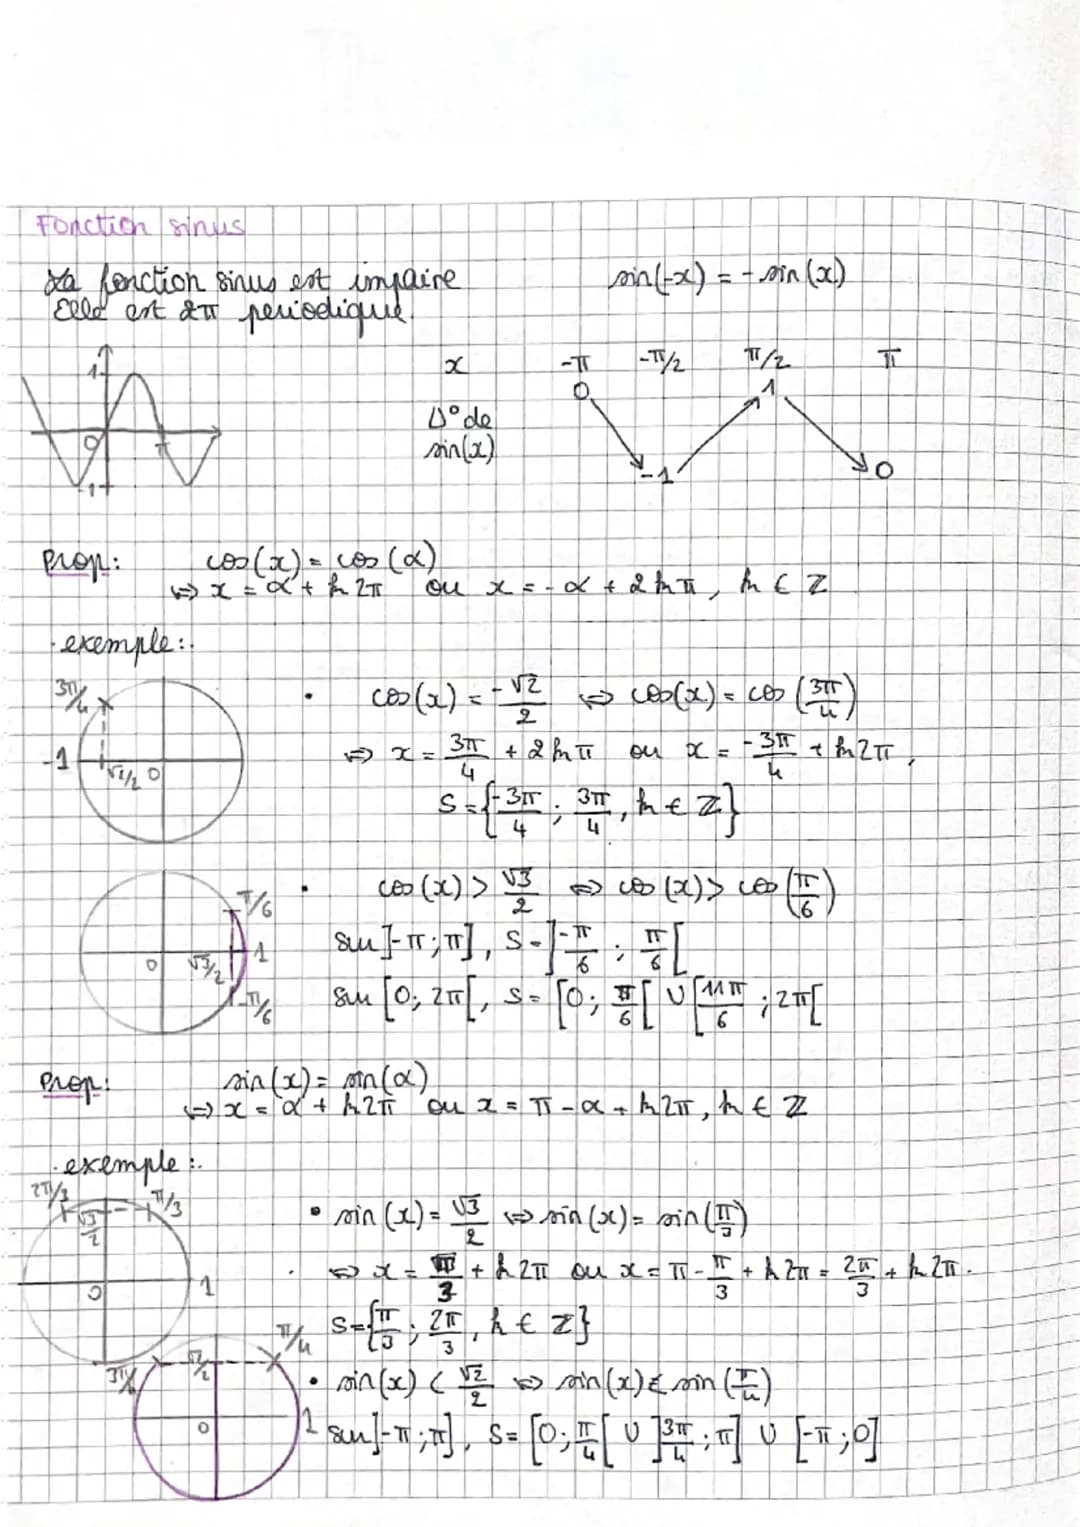 Fonction sinus
La fonction sinus est impaire sin(-x) = - sin(x)
Elle est 2π periodique.
x -π -π/2 π/2 π
V° de sin(x) 0 -1 1 0
1 0 π -1
Prop: cos(x) = cos(α)
⇔ x = α + k2π ou x = -α + 2kπ, k ∈ Z
· exemple :.
3π/4 -1 √2/2 0
• cos(x) = -√2/2 ⇔ cos(x) = cos(3π/4)
⇔ x = 3π/4 + 2kπ ou x = -3π/4 + k2π,
S = {-3π/4 ; 3π/4, k ∈ Z}
π/6 0 √3/2 1 -π/6
• cos(x) > √3/2 ⇔ cos(x) > cos(π/6)
sur ]-π;π], S = ]-π/6 ; π/6[
sur [0; 2π[, S = [0; π/6[ U [11π/6 ; 2π[
Prop: sin(x) = sin(α)
⇔ x = α + k2π ou x = π - α + k2π, k ∈ Z
· exemple :.
2π/3 √3/2 π/3 0 1
• sin(x) = √3/2 ⇔ sin(x) = sin(π/3)
⇔ x = π/3 + k2π ou x = π - π/3 + k2π = 2π/3 + k2π.
S = {π/3 ; 2π/3, k ∈ Z}
3π/4 √2/2 π/4 0 1
• sin(x) < √2/2 ⇔ sin(x) < sin(π/4)
sur ]-π;π], S = [0; π/4[ U ]3π/4 ; π] U [-π ; 0]